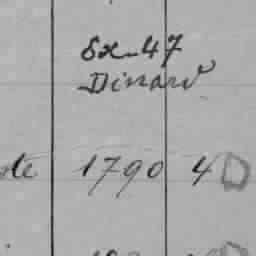 Ex-47
Dinard
1790 4 D